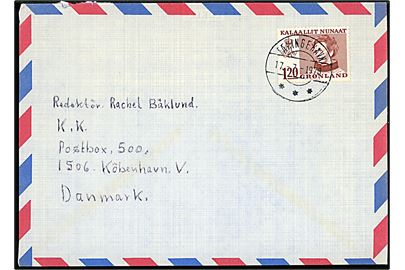 KALAALLIT NUNAAT
120 GRØNLAND
Redaktör. Rachel Båklund.
K.K.
Postbox, 500,
1506. Köbenhavn. V.
Danmark.